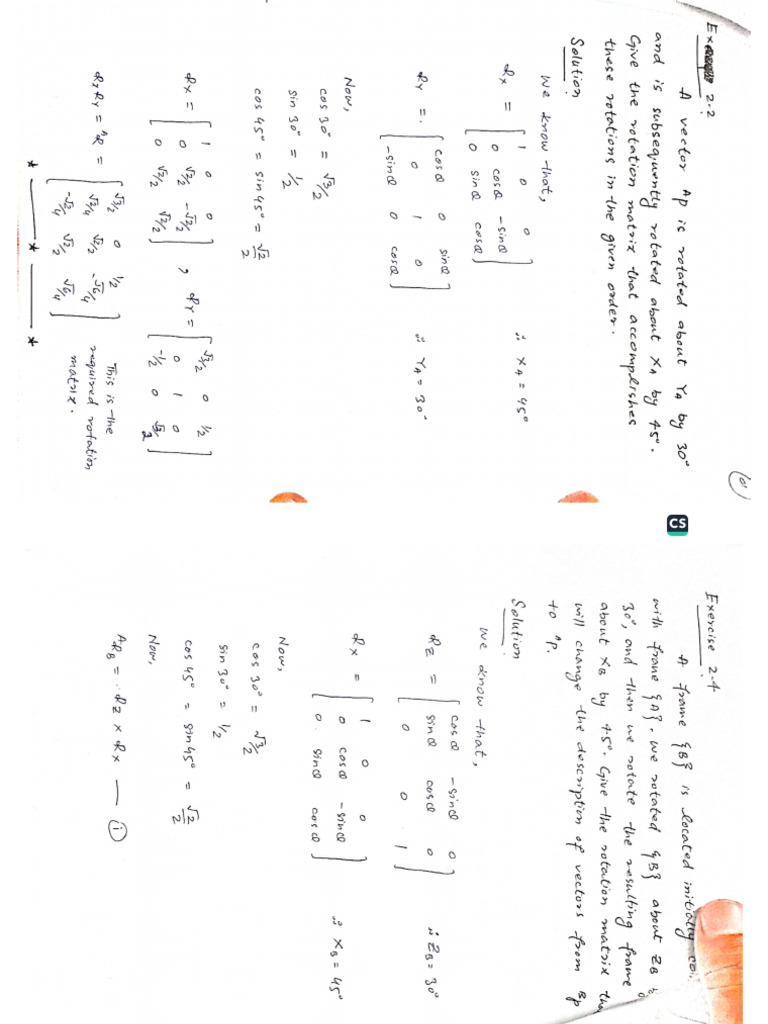 Ex 2.2
A vector Ap is rotated about YA by 30°
and is subsequently rotated about XA by 45°.
Give the rotation matrix that accomplishes
these rotations in the given order.
Solution
We know that,
RX = [ 1 0 0
0 cosθ -sinθ
0 sinθ cosθ ] ∴ XA = 45°
RY = [ cosθ 0 sinθ
0 1 0
-sinθ 0 cosθ ] ∴ YA = 30°
Now,
cos 30° = √3/2
sin 30° = 1/2
cos 45° = sin 45° = √2/2
RX = [ 1 0 0
0 √2/2 -√2/2
0 √2/2 √2/2 ] , RY = [ √3/2 0 1/2
0 1 0
-1/2 0 √3/2 ]
RXRY = AR = [ √3/2 0 1/2
√2/4 √2/2 -√6/4
-√2/4 √2/2 √6/4 ] This is the
required rotation
matrix.
CS
Exercise 2.4
A frame {B} is located initially
with frame {A}. We rotated {B} about ZB
30°, and then we rotate the resulting frame
about XB by 45°. Give the rotation matrix
will change the description of vectors from BP
to AP.
Solution
We know that,
RZ = [ cosθ -sinθ 0
sinθ cosθ 0
0 0 1 ] ∴ ZB = 30°
RX = [ 1 0 0
0 cosθ -sinθ
0 sinθ cosθ ] ∴ XB = 45°
Now,
cos 30° = √3/2
sin 30° = 1/2
cos 45° = sin 45° = √2/2
Now,
ARB = RZ × RX — (i)